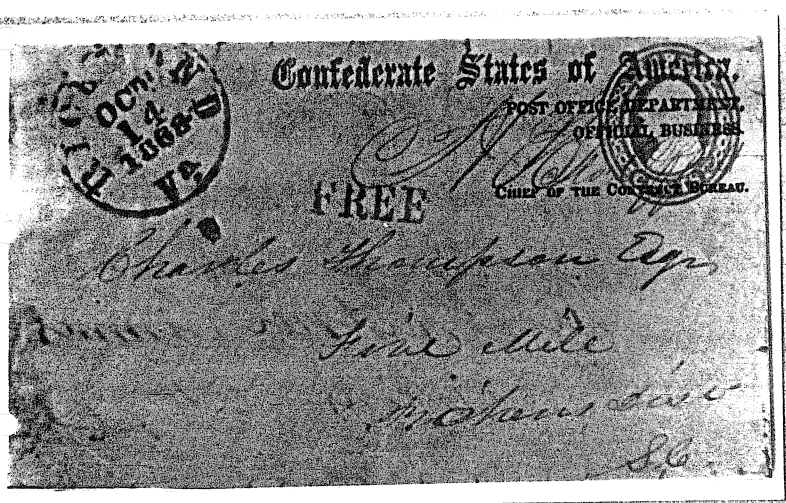 RICHMOND
OCT
14
1863
VA
Confederate States of America.
POST OFFICE DEPARTMENT,
OFFICIAL BUSINESS.
CHIEF OF THE CONTRACT BUREAU.
FREE
Charles Thompson Esqr
Five Mile
S.C.